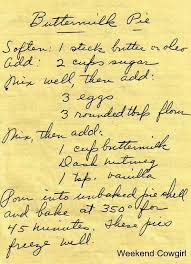 Buttermilk Pie
Soften: 1 stick butter or oleo
Add: 2 cups sugar
Mix well, then add:
3 eggs
3 rounded tbsp flour
Mix, then add:
1 cup buttermilk
Dash nutmeg
1 tsp. vanilla
Pour into unbaked pie shell
and bake at 350° for
45 minutes. These pies
freeze well.
Weekend Cowgirl